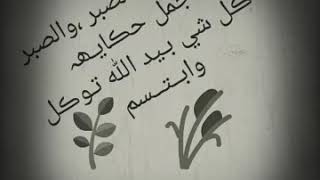 لصبر ،والصبر
جمل حكايهہ
كل شي بيد الله توكل
وابتسم